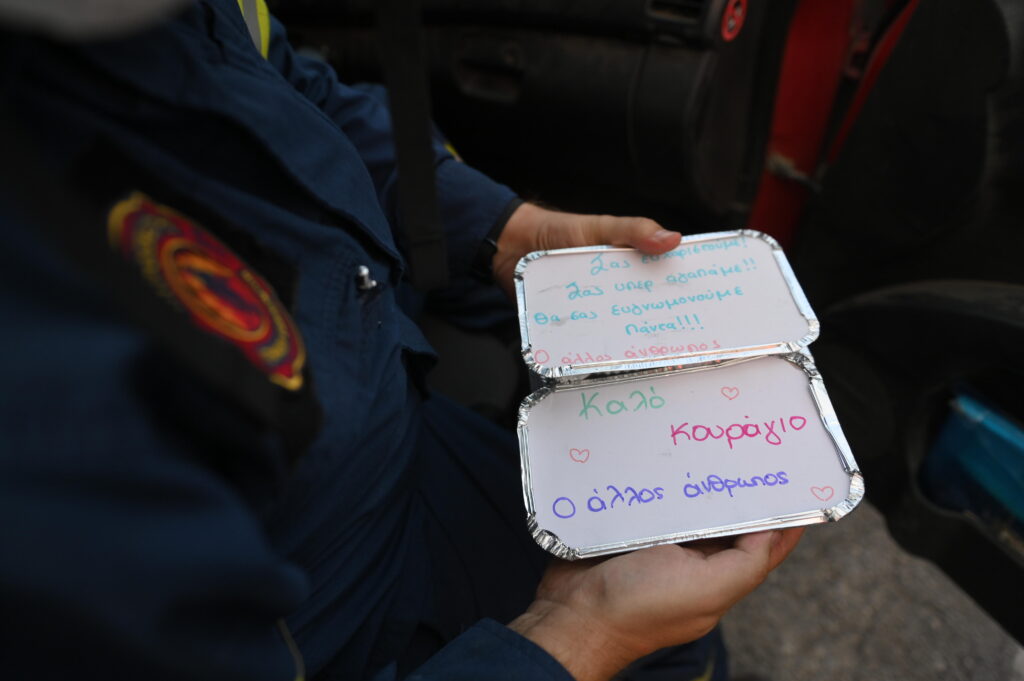 Σας ευχαριστούμε!
Σας υπερ αγαπάμε!!
Θα σας ευγνωμονούμε
πάντα!!!
Ο άλλος άνθρωπος
Καλό
κουράγιο
Ο άλλος άνθρωπος